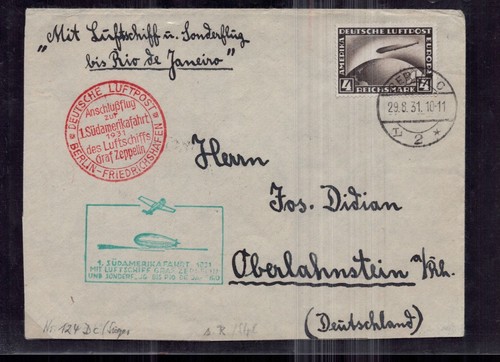 "Mit Luftschiff u. Sonderflug
bis Rio de Janeiro"
DEUTSCHE LUFTPOST
AMERIKA
EUROPA
4 REICHSMARK 4
29.8.31.10-11
2
DEUTSCHE LUFTPOST
Anschlußflug
zur
1. Südamerikafahrt
1931
des Luftschiffs
Graf Zeppelin
BERLIN-FRIEDRICHSHAFEN
Herrn
Jos. Didian
Oberlahnstein a/Rh.
(Deutschland)
1. SÜDAMERIKAFAHRT 1931
MIT LUFTSCHIFF GRAF ZEPPELIN
UND SONDERFLUG BIS RIO DE JANEIRO